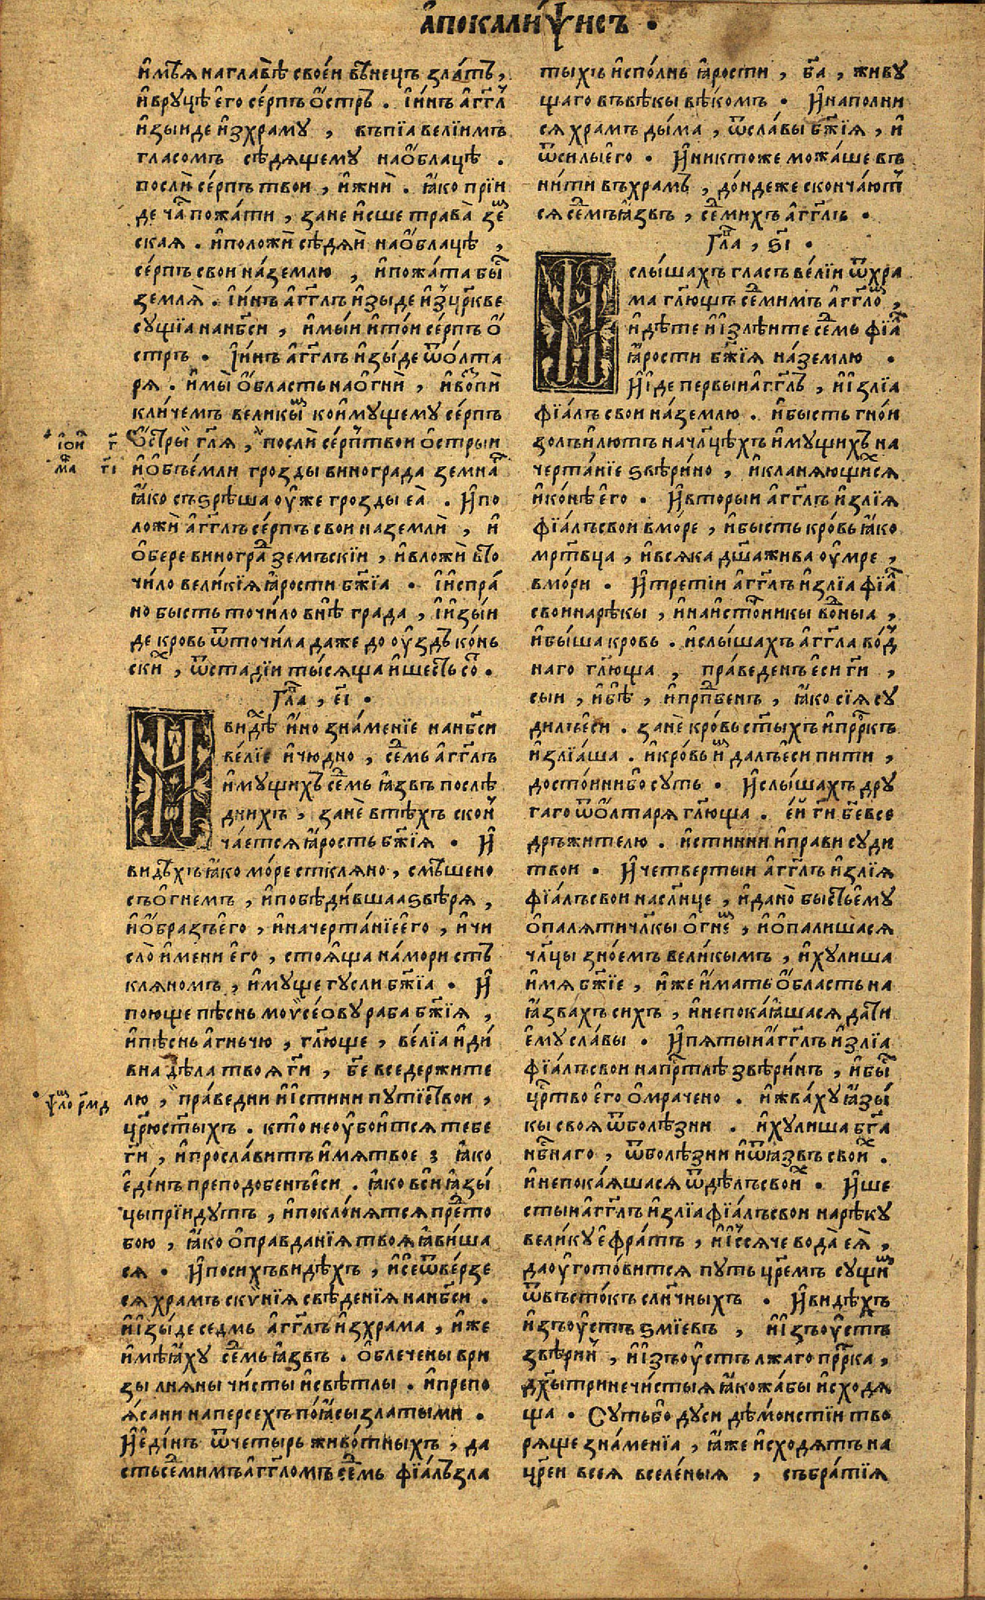 а҆покали́ѱисъ .
и҆мѣ́я на главѣ̀ свое́и вѣне́цъ зла́тъ,
и҆ в руцѣ̀ є҆го̀ се́рпъ ѻ҆́стръ . І҆ и҆́нъ а҆́гг҃лъ
и҆зыиде и҆з храму , въпїа̀ ве́лїимъ
гласомъ сѣдя́щему на ѻ҆́блацѣ .
послѝ се́рпъ твои , и҆ жнѝ . ꙗ҆́ко прїи
де ча́съ пожа́ти , зане и҆сше трава̀ зем
ская . и҆ положѝ сѣдя́й на ѻ҆́блацѣ ,
се́рпъ свои на́ землю , и҆ пожа́та бы́с
земля̀ . І҆ и҆́нъ а҆́гг҃лъ и҆зы́де и҆з̾ цр҃кве
сущїа на нб҃си , и҆мы́и и҆ то́и се́рпъ ѻ҆́
стръ . І҆ и҆́нъ а҆́гг҃лъ и҆зы́де ѿ ѻ҆лта
ря . и҆мы́ ѻ҆́бласть на ѻ҆гнѝ , и҆ возопѝ
кли́чемъ великы́м ко и҆мущему се́рпъ
ѻ҆́стрыи гл҃я , послѝ се́рпъ твои ѻ҆́стрыи
и҆ ѻ҆б̾е́мли грозды винограда земна́г
ꙗ҆́ко съзрѣша оу҆же грозды еа̀ . И҆ по
ложѝ а҆́гг҃лъ се́рпъ свои на землѝ , и҆
ѻ҆бере виногра́д земъскїи , и҆ вложѝ въ то
чи́ло вели́кїя ꙗ҆́рости бж҃їа . І҆ и҆спра́
но бысть точи́ло внѣ̀ града , і҆ и҆зы́и
де кровь ѿ точи́ла даже до оу҆́здъ ко́нь
ски́х , ѿ ста́дїи ты́сяща и҆ ше́сть со́т .
Гла̑ , є҃і .
И҆
видѣ́х и҆́но зна́менїе на нб҃си
ве́лїе и҆ чю́дно , се́дмь а҆́гг҃лъ
и҆му́щихъ се́дмь ꙗ҆́звъ послѣ́
днихъ , занѐ в тѣ́хъ скон
ча́ется ꙗ҆́рость бж҃їя . И҆
видѣ́хъ ꙗ҆́ко мо́ре стклян̀о , смѣ́шено
съ ѻ҆гнемъ , и҆ побѣди́вшаа ѕвѣ́ря ,
и҆ ѻ҆́бразъ є҆го , и҆ начерта́нїе є҆го , и҆ чи
сло̀ и҆́мени є҆го , стоя́ща на́ мори стъ
кля́номъ , и҆му́ще гу́сли бж҃їа . И҆
пою́ще пѣ́снь моѵсе́ову раба бж҃їя ,
и҆ пѣ́снь а҆́гньчю , гл҃юще , ве́лїа и҆ ди́
вна дѣ́ла твоя гд҃и , бж҃е вседержите
лю , пра́ведни и҆ и҆́стинни путїе́ твои ,
цр҃ю ст҃ыхъ . кто̀ не оу҆бои́тся тебе
гд҃и , и҆ просла́витъ и҆́мя твое ; ꙗ҆́ко
є҆ди́нъ преподо́бенъ є҆си . ꙗ҆́ко вси ꙗ҆зы
цы прїи́дутъ , и҆ покло́нятся пред то
бою , ꙗ҆́ко ѻ҆правда́нїя твоя̀ ꙗ҆ви́ша
ся . И҆ по си́хъ ви́дѣхъ , и҆ сѐ ѿве́рзе
ся хра́мъ ски́нїя свѣде́нїя на нб҃си .
и҆ и҆зы́де се́дмь а҆́гг҃лъ и҆з храма , и҆́же
и҆мѣ́яху се́дмь ꙗ҆́звъ . ѻ҆блече́ны в ри
зы льня́ны чи́сты и҆ свѣ́тлы . и҆ препо
я́сани на пе́рсехъ по́ꙗсы златыми .
И҆ є҆ди́нъ ѿ четы́рь живо́тныхъ , да
сть се́дмимъ а҆́гг҃ломъ се́дмь фїа́лъ зла
і҆ои́л г҃
гла̑ г҃і
ѱало́м рм҃д
тыхъ и҆спо́лнь ꙗ҆́рости , бг҃а , живу
щаго въ вѣ́кы вѣ́комъ . И҆ напо́лни
ся хра́мъ ды́ма , ѿ сла́вы бж҃їя , и҆
ѿ си́лы є҆го . И҆ никто́же можа́ше въ
ни́ти въ хра́мъ , до́ндеже сконча́ют
ся се́дмь ꙗ҆́звъ , се́дмихъ а҆́гг҃лъ .
Гла̑ , ѕ҃і .
И҆
слы́шахъ гла́съ ве́лїи ѿ хра
ма гл҃ющъ се́дмимъ а҆́гг҃лом ,
и҆дѣ́те и҆ и҆злѣ́ите се́дмь фїа́л
ꙗ҆́рости бж҃їя на́ землю .
И҆ и҆́де пе́рвыи а҆́гг҃лъ , и҆ и҆злїа̀
фїа́лъ свои на́ землю . и҆ бысть гно́и
зо́лъ и҆ лю́тъ на чл҃цѣхъ и҆му́щихъ на
черта́нїе ѕвѣри́но , и҆ кла́няющихся
и҆ко́нѣ є҆го . И҆ вторыи а҆́гг҃лъ и҆злїя̀
фїа́лъ свои в мо́ре , и҆ бы́сть кро́вь ꙗ҆́ко
мр҃твца , и҆ вся́ка дш҃а жива оу҆́мре ,
в мо́ри . И҆ тре́тїи а҆́гг҃лъ и҆злїа̀ фїа́л
свои на рѣ́кы , и҆ на и҆сто́чникы во́дныа ,
и҆ бы́ша кровь . и҆ слы́шахъ а҆́гг҃ла во́д
наго гл҃юща , пра́веденъ єси гд҃и ,
сыи , и҆ бѣ̀ , и҆ прп҃дбенъ , ꙗ҆́ко сїя су
ди́лъ єси . занѐ кро́вь ст҃ыхъ и҆ пр҃ркъ
и҆злїа́ша . и҆ кро́вь и҆м да́лъ єси пи́ти ,
досто́ини бо су́ть . И҆ слы́шахъ дру
га́го ѿ ѻ҆лтаря̀ гл҃юща . є҆́й гд҃и бж҃е все
дръжи́телю . и҆́стинни и҆ пра́ви судѝ
твои . И҆ четвертыи а҆́гг҃лъ и҆злїя̀
фїа́лъ свои на сл҃нце , и҆ дано̀ бысть є҆му
ѻ҆паля́ти чл҃кы ѻ҆гне́м , и҆ ѻ҆пали́шася
чл҃цы зно́емъ вели́кымъ , и҆ хулиша
и҆мя бж҃їе , и҆́же и҆́мать ѻ҆́бласть на
ꙗ҆́звахъ си́хъ , и҆ не пока́яшася да́ти
є҆му сла́вы . И҆ пятыи а҆́гг҃лъ и҆злїа̀
фїа́лъ свои на прс҃тлѣ ѕвѣ́ринъ , и҆ бы́с
цр҃тво є҆го ѻ҆мрачено . и҆ жва́ху ꙗ҆зы́
кы своя ѿ болѣ́зни . и҆ хули́ша бг҃а
нб҃снаго , ѿ болѣ́зни и҆ ѿ ꙗ҆́звъ свои́х .
и҆ не пока́яшася ѿ дѣ́лъ свои́х . И҆ ше
стыи а҆́гг҃лъ и҆злїа̀ фїа́лъ свои на рѣку
вели́ку є҆фра́тъ , и҆ и҆́ссяче вода̀ еѧ̀ ,
да оу҆гото́вится пу́ть цр҃емъ су́щим
ѿ въсто́къ сл҃нчныхъ . И҆ ви́дѣхъ
и҆зъ оу҆́стъ ѕмїе́въ , и҆ и҆зъ оу҆́стъ
звѣ́рий , и҆ и҆зъ оу҆́стъ лжа́го пр҃рка ,
дх҃ы три нечи́стыя ꙗ҆́ко жа́бы и҆схо́дя
ща . Су́ть бо ду́си де́монстїи тво
ря́ще зна́менїа , ꙗ҆́же и҆схо́дятъ на
цр҃еи всея вселе́ныя , събра́тїя